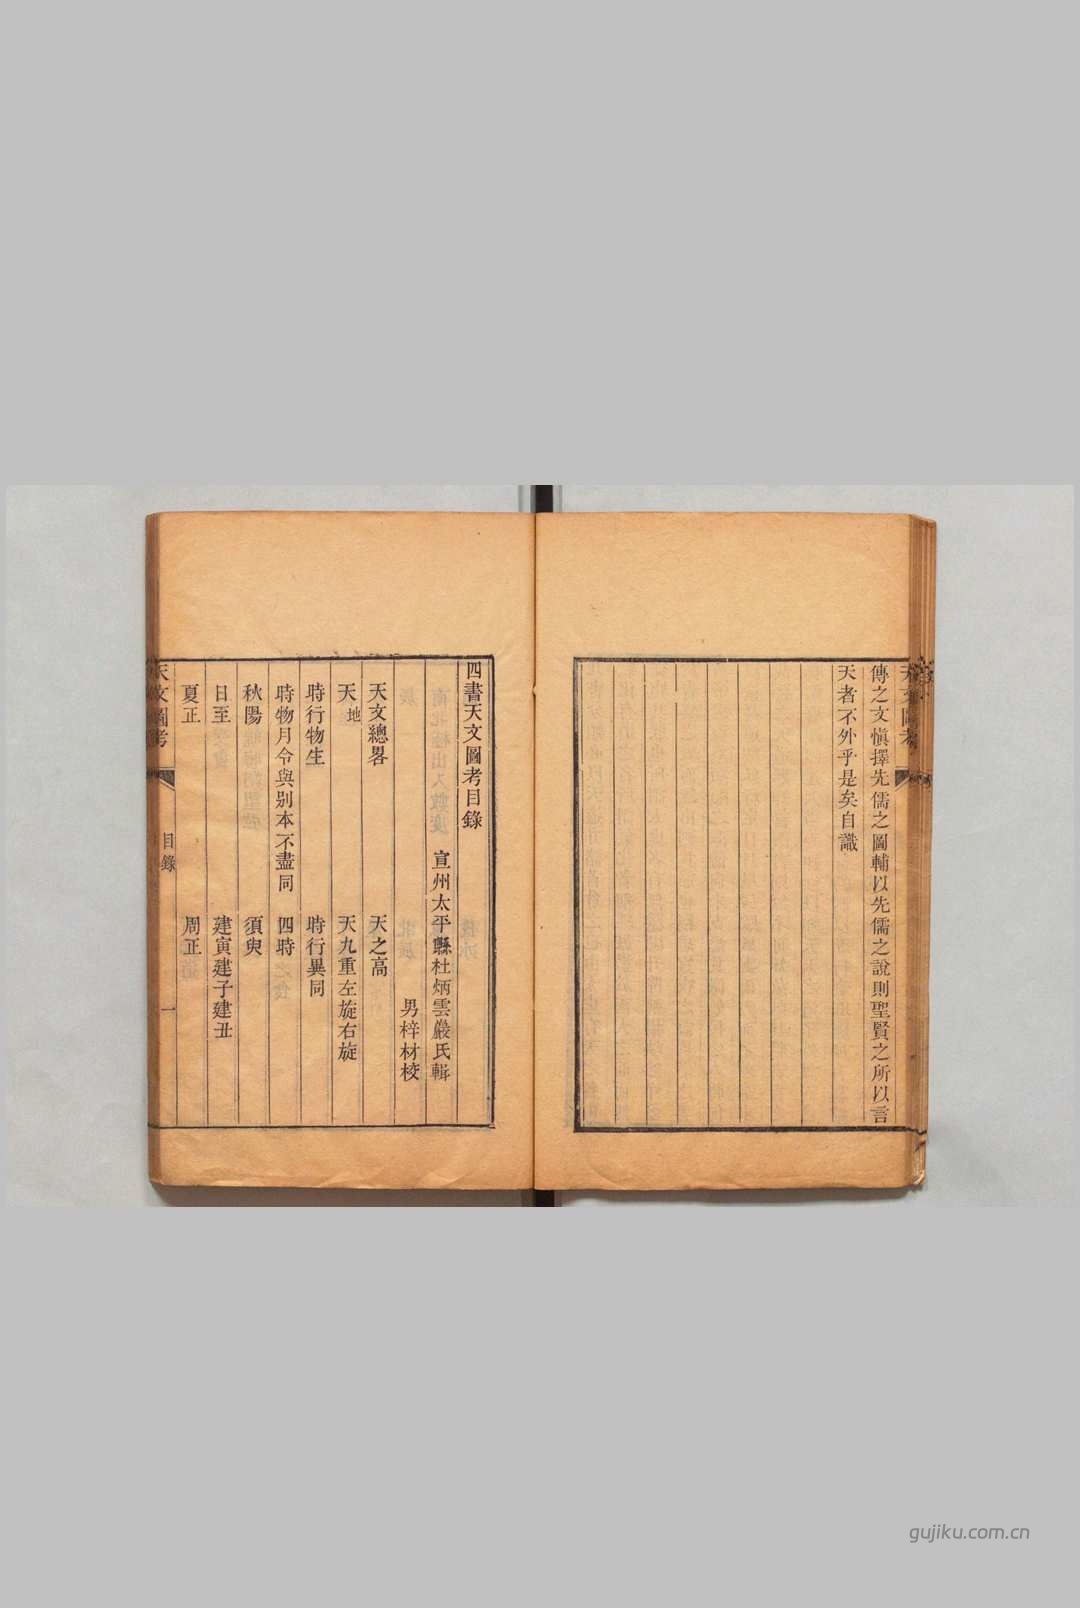 傳之文愼擇先儒之圖輔以先儒之說則聖賢之所以言
天者不外乎是矣自識
四書天文圖考目錄
宣州太平縣杜炳雲巖氏輯
男梓材校
天文總畧 天之高
天地 天九重左旋右旋
時行物生 時行異同
時物月令與别本不盡同 四時
秋陽 須臾
日至 建寅建子建丑
夏正 周正
天文圖考 目錄 一
gujiku.com.cn